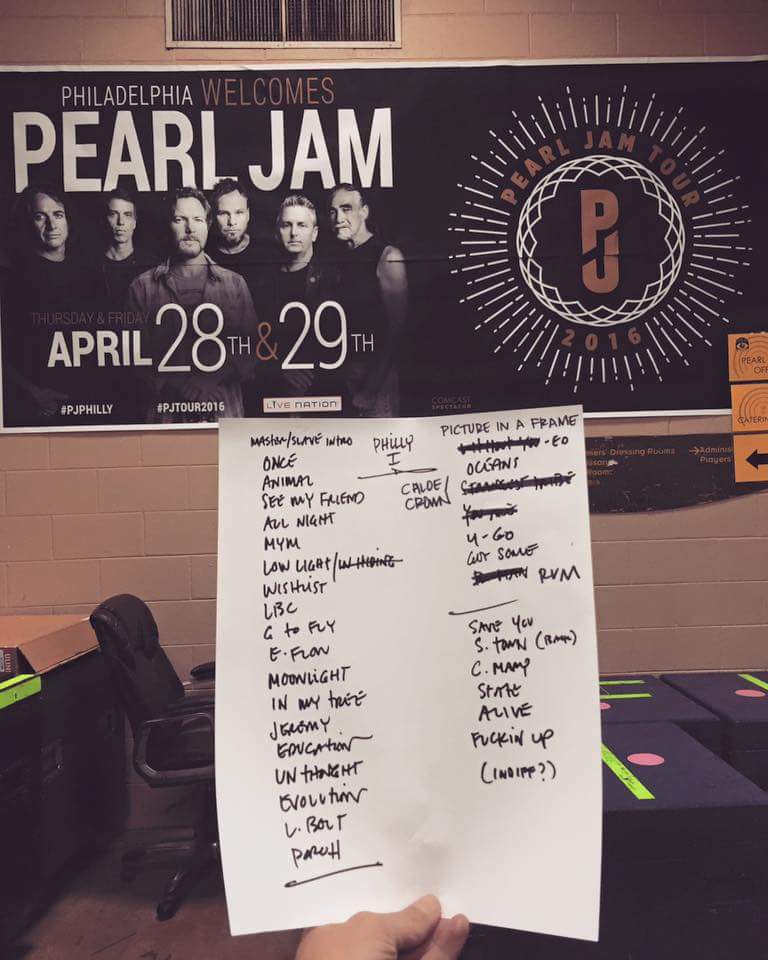 PHILADELPHIA WELCOMES
PEARL JAM
THURSDAY & FRIDAY
APRIL 28TH & 29TH
#PJPHILLY #PJTOUR2016 LIVE NATION COMCAST SPECTACOR
PEARL JAM TOUR
PJ
2016
PEARL
OFF
CATERIN
Dressing Rooms
Adminis
Players
PHILLY
I
MASTER/SLAVE INTRO
ONCE
ANIMAL
SEE MY FRIEND
ALL NIGHT
MYM
LOW LIGHT/IN HIDING
WISHLIST
LBC
G TO FLY
E. FLOW
MOONLIGHT
IN MY TREE
JEREMY
EDUCATION
UNTHOUGHT
EVOLUTION
L. BOLT
PORCH
PICTURE IN A FRAME
- ED
OCEANS
CROWN
U-GO
GOT SOME
RVM
SAVE YOU
S. TOWN
C. MAMP
STATE
ALIVE
FUCKIN UP
(INDIFF?)